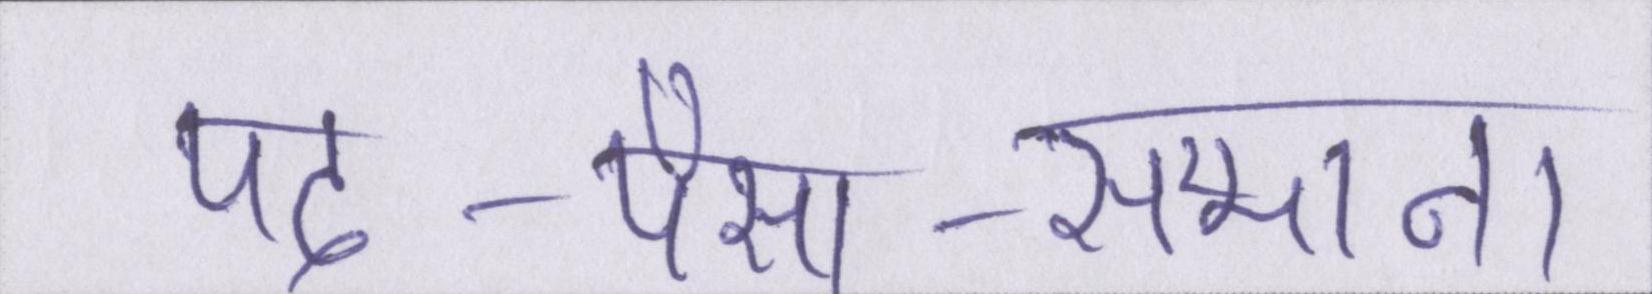 पद - पैसा - सम्माना